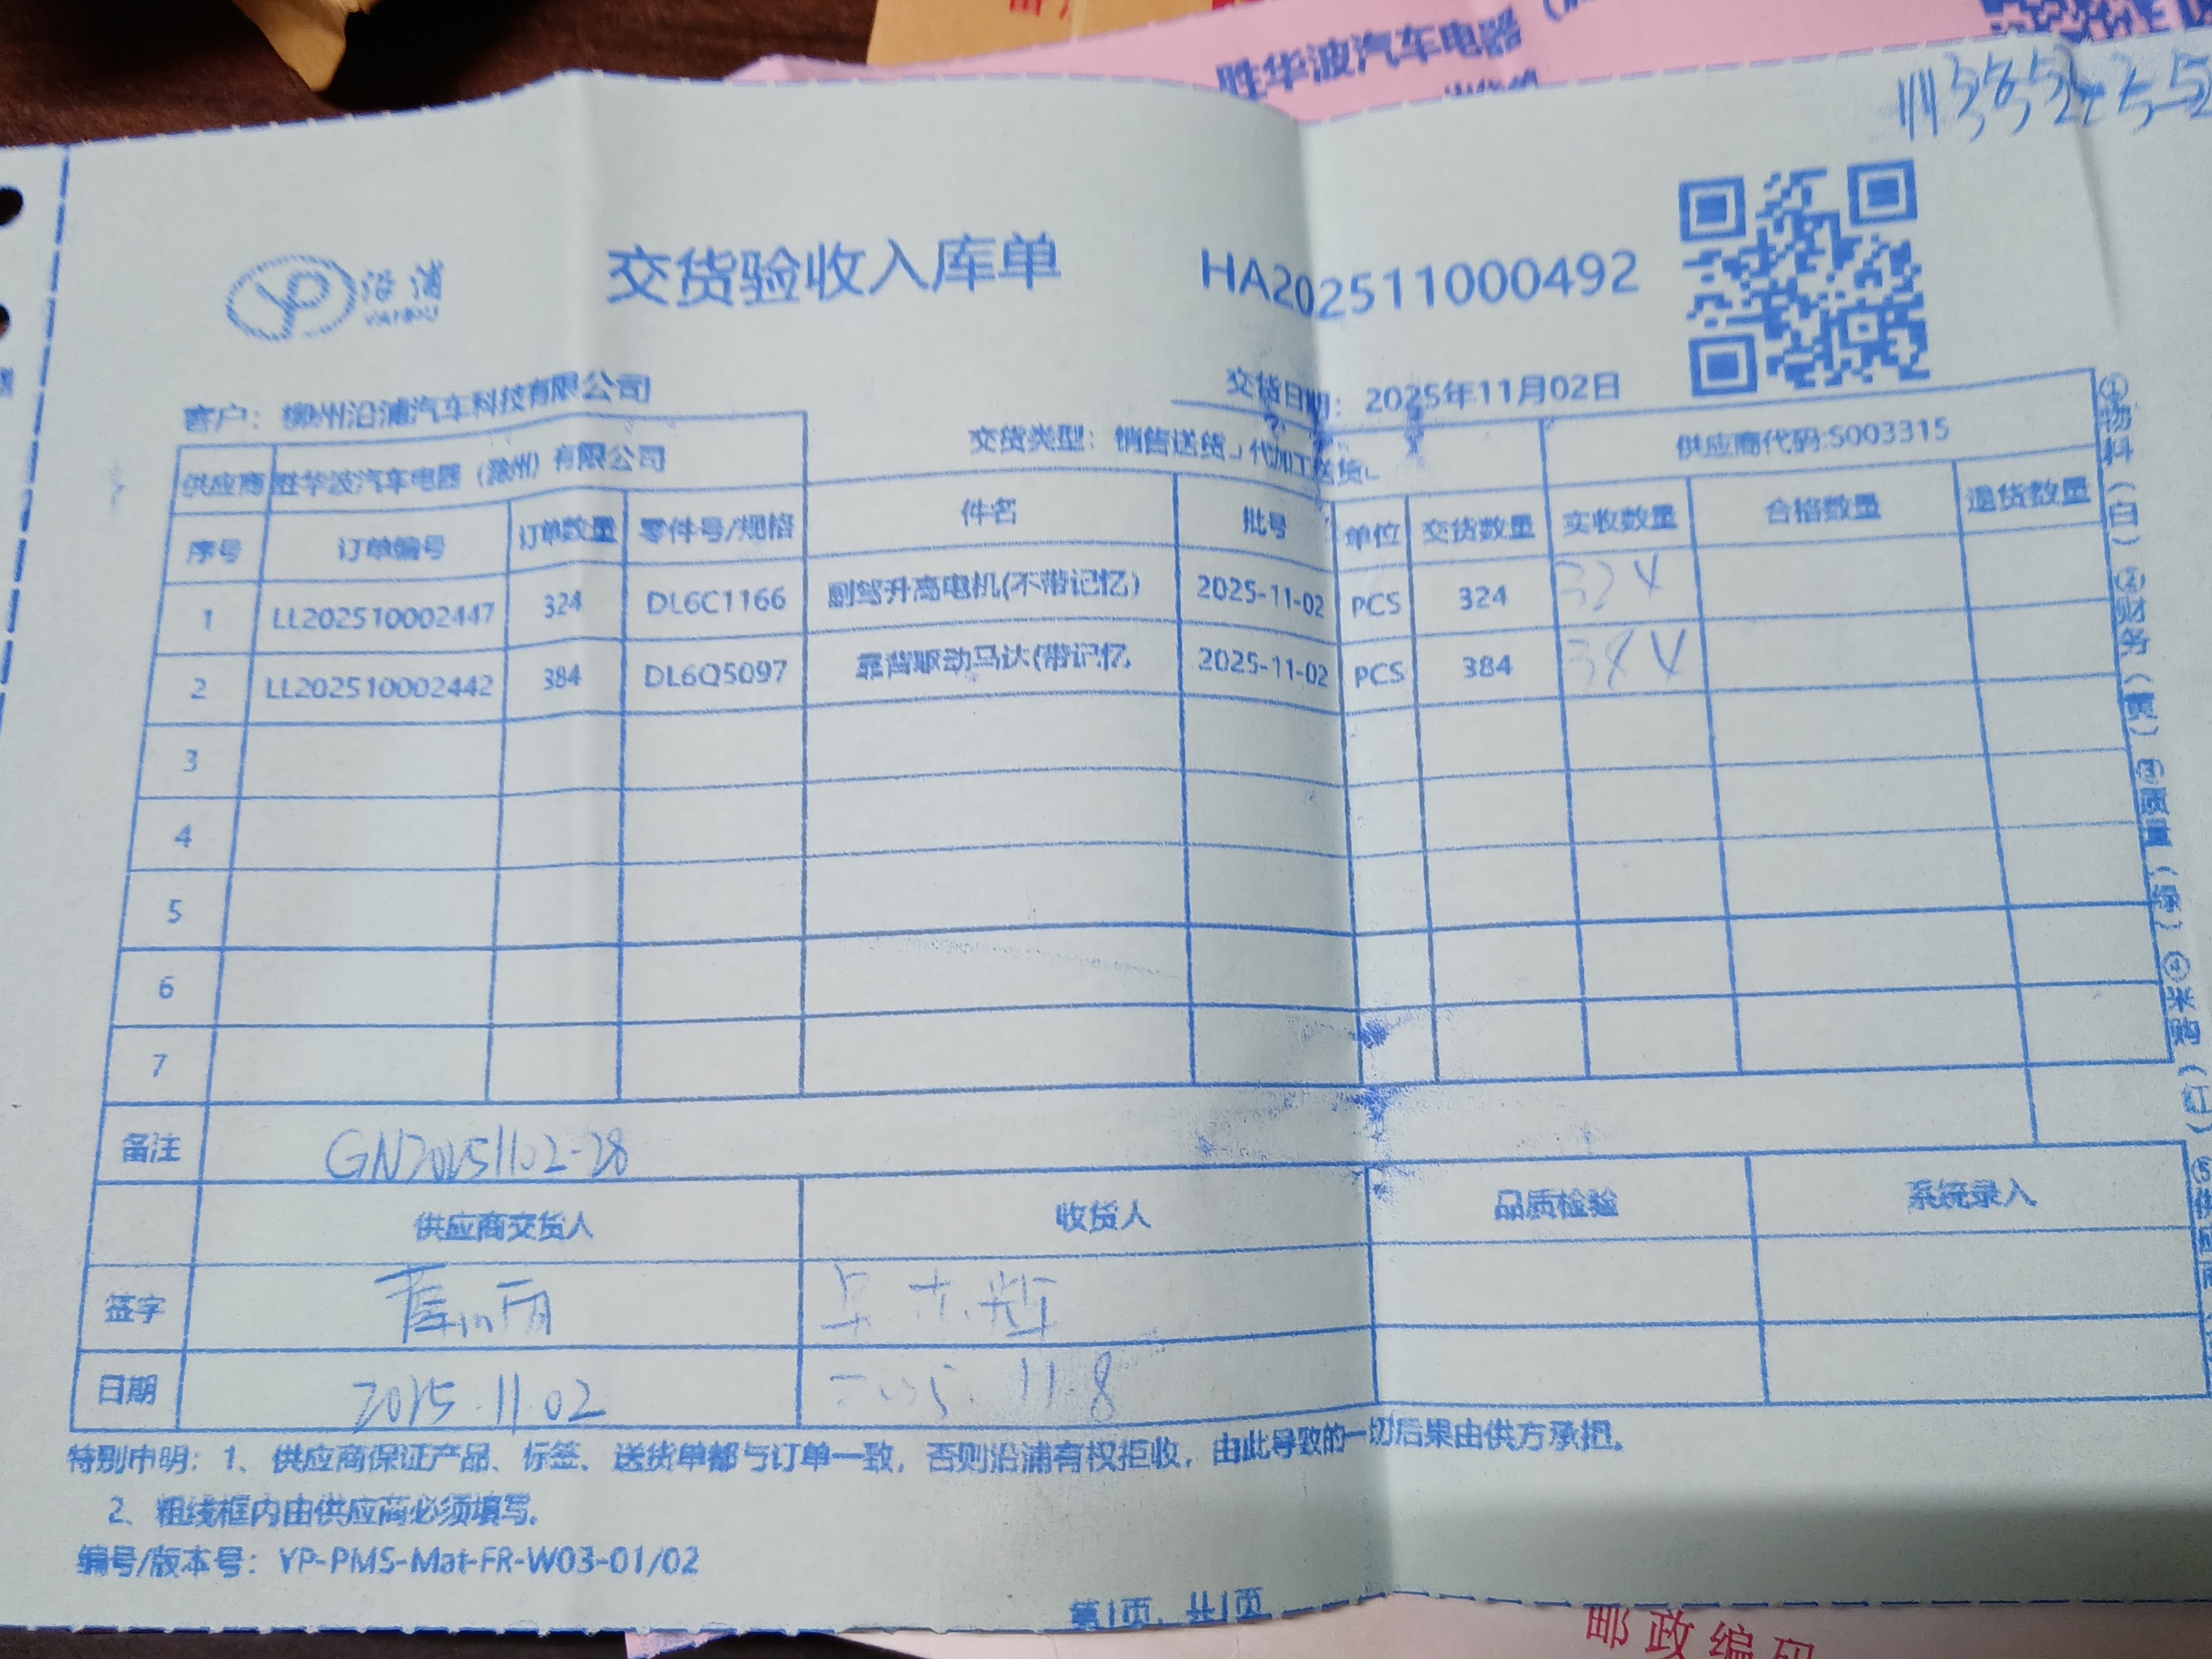 胜华波汽车电器
沿浦
YANPU
交货验收入库单
HA202511000492
客户：柳州沿浦汽车科技有限公司
交货日期：2025年11月02日
供应商 胜华波汽车电器（滁州）有限公司 交货类型：销售送货 代加工送货 供应商代码:S003315
序号 订单编号 订单数量 零件号/规格 件名 批号 单位 交货数量 实收数量 合格数量 退货数量
1 LL202510002447 324 DL6C1166 副驾升高电机(不带记忆) 2025-11-02 PCS 324 324
2 LL202510002442 384 DL6Q5097 靠背驱动马达(带记忆 2025-11-02 PCS 384 384
3
4
5
6
7
备注 GN20251102-28
供应商交货人 收货人 品质检验 系统录入
签字
日期 2025.11.02 2025.11.8
特别申明：1、供应商保证产品、标签、送货单都与订单一致，否则沿浦有权拒收，由此导致的一切后果由供方承担。
2、粗线框内由供应商必须填写。
编号/版本号：YP-PMS-Mat-FR-W03-01/02
第1页，共1页
邮政编码